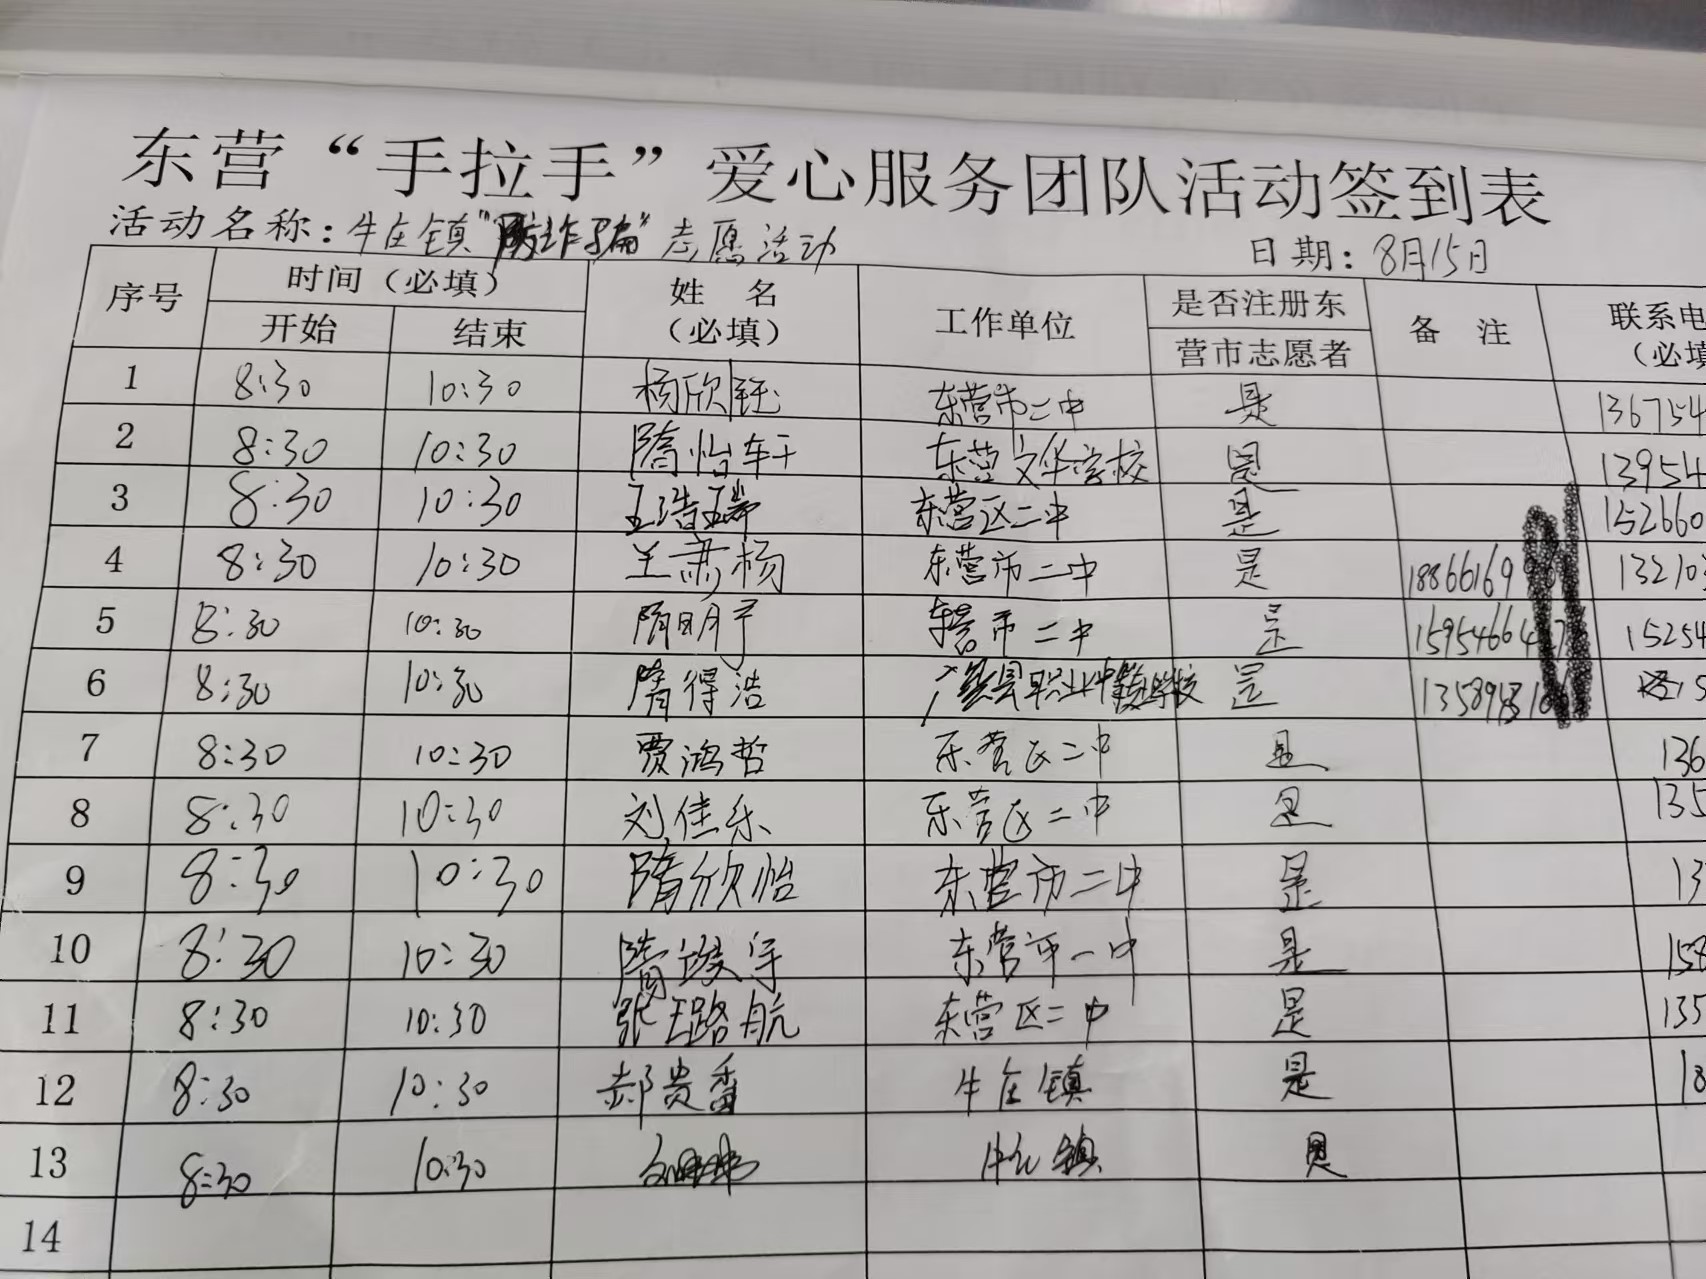 东营“手拉手”爱心服务团队活动签到表
活动名称：牛庄镇“防诈骗”志愿活动 日期：8月15日
序号 时间（必填） 姓 名（必填） 工作单位 是否注册东营市志愿者 备 注 联系电
开始 结束 （必填
1 8:30 10:30 杨欣钰 东营市二中 是 136754
2 8:30 10:30 隋怡轩 东营文华学校 是 13954
3 8:30 10:30 王浩瑞 东营区二中 是 152660
4 8:30 10:30 王肃杨 东营市二中 是 18866169 13210
5 8:30 10:30 隋明宇 东营市二中 是 15954664 15254
6 8:30 10:30 隋得浩 职业中等学校 是 1358948
7 8:30 10:30 贾鸿哲 东营区二中 是 136
8 8:30 10:30 刘佳乐 东营区二中 是 135
9 8:30 10:30 隋欣怡 东营市二中 是 13
10 8:30 10:30 隋宇 东营市一中 是 158
11 8:30 10:30 张王路航 东营区二中 是 135
12 8:30 10:30 郝贵香 牛庄镇 是 18
13 8:30 10:30 牛庄镇 是
14